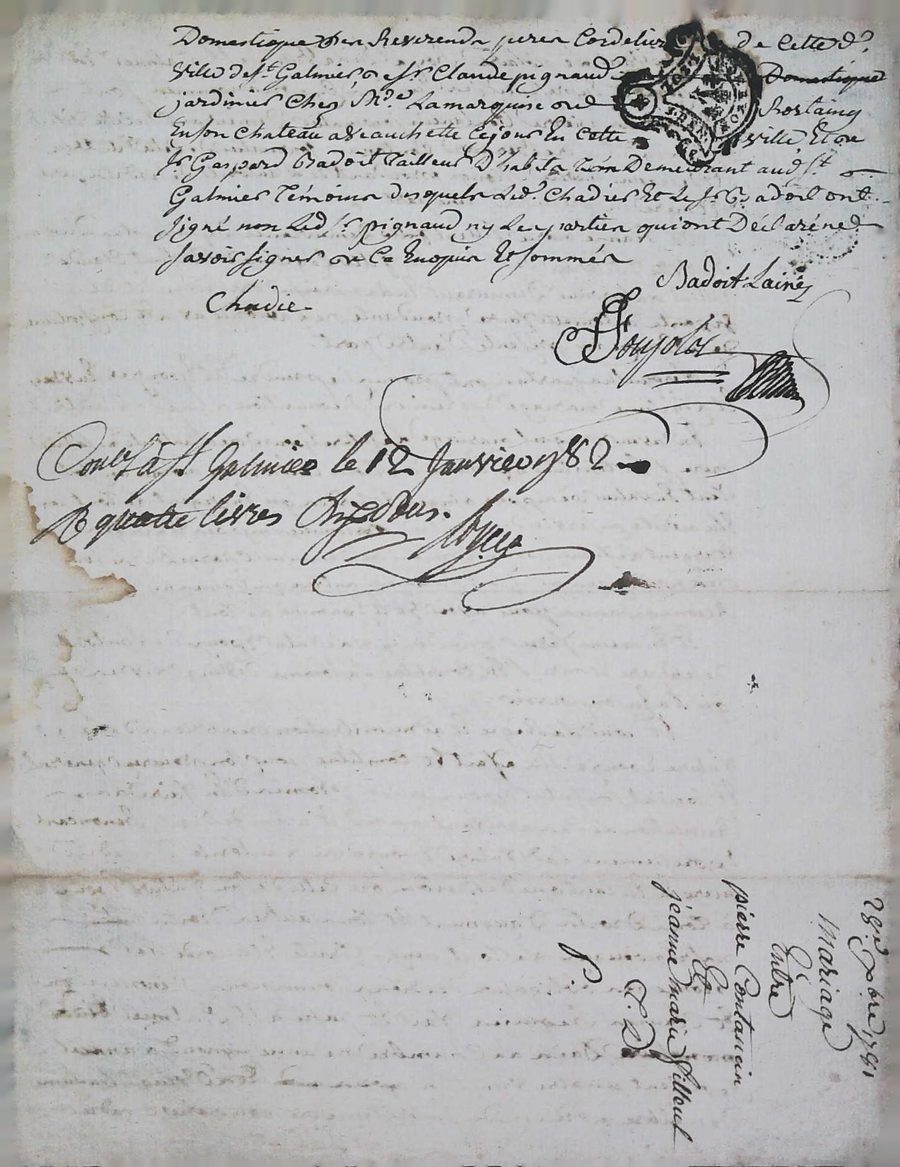 Domestique des Reverends peres Cordeliers de Cette d.
ville de st. Galmier & sr. Claude pignaud Domestique
jardinier Chez Mde. La marquise de Rostaing
En son Chateau a Veauchette Ce jour En Cette ville, Et de
sr. Gaspard Badoit Tailleur D'habits Demeurant aud. st.
Galmier Témoins desquels Led. Chadier Et Le sr. Badoit ont
signé non Led. sr. pignaud ny Les parties qui ont Déclaré ne
savoir signer de Ce Enquis Et sommés
Badoit Lainé
Chadie
Conlé. à st. Galmier le 12 Janvier 1782
R quatre livres dix sous.
28e. xbre 1781
Mariage
Entre
pierre Coutancin
Et
jeanne marie